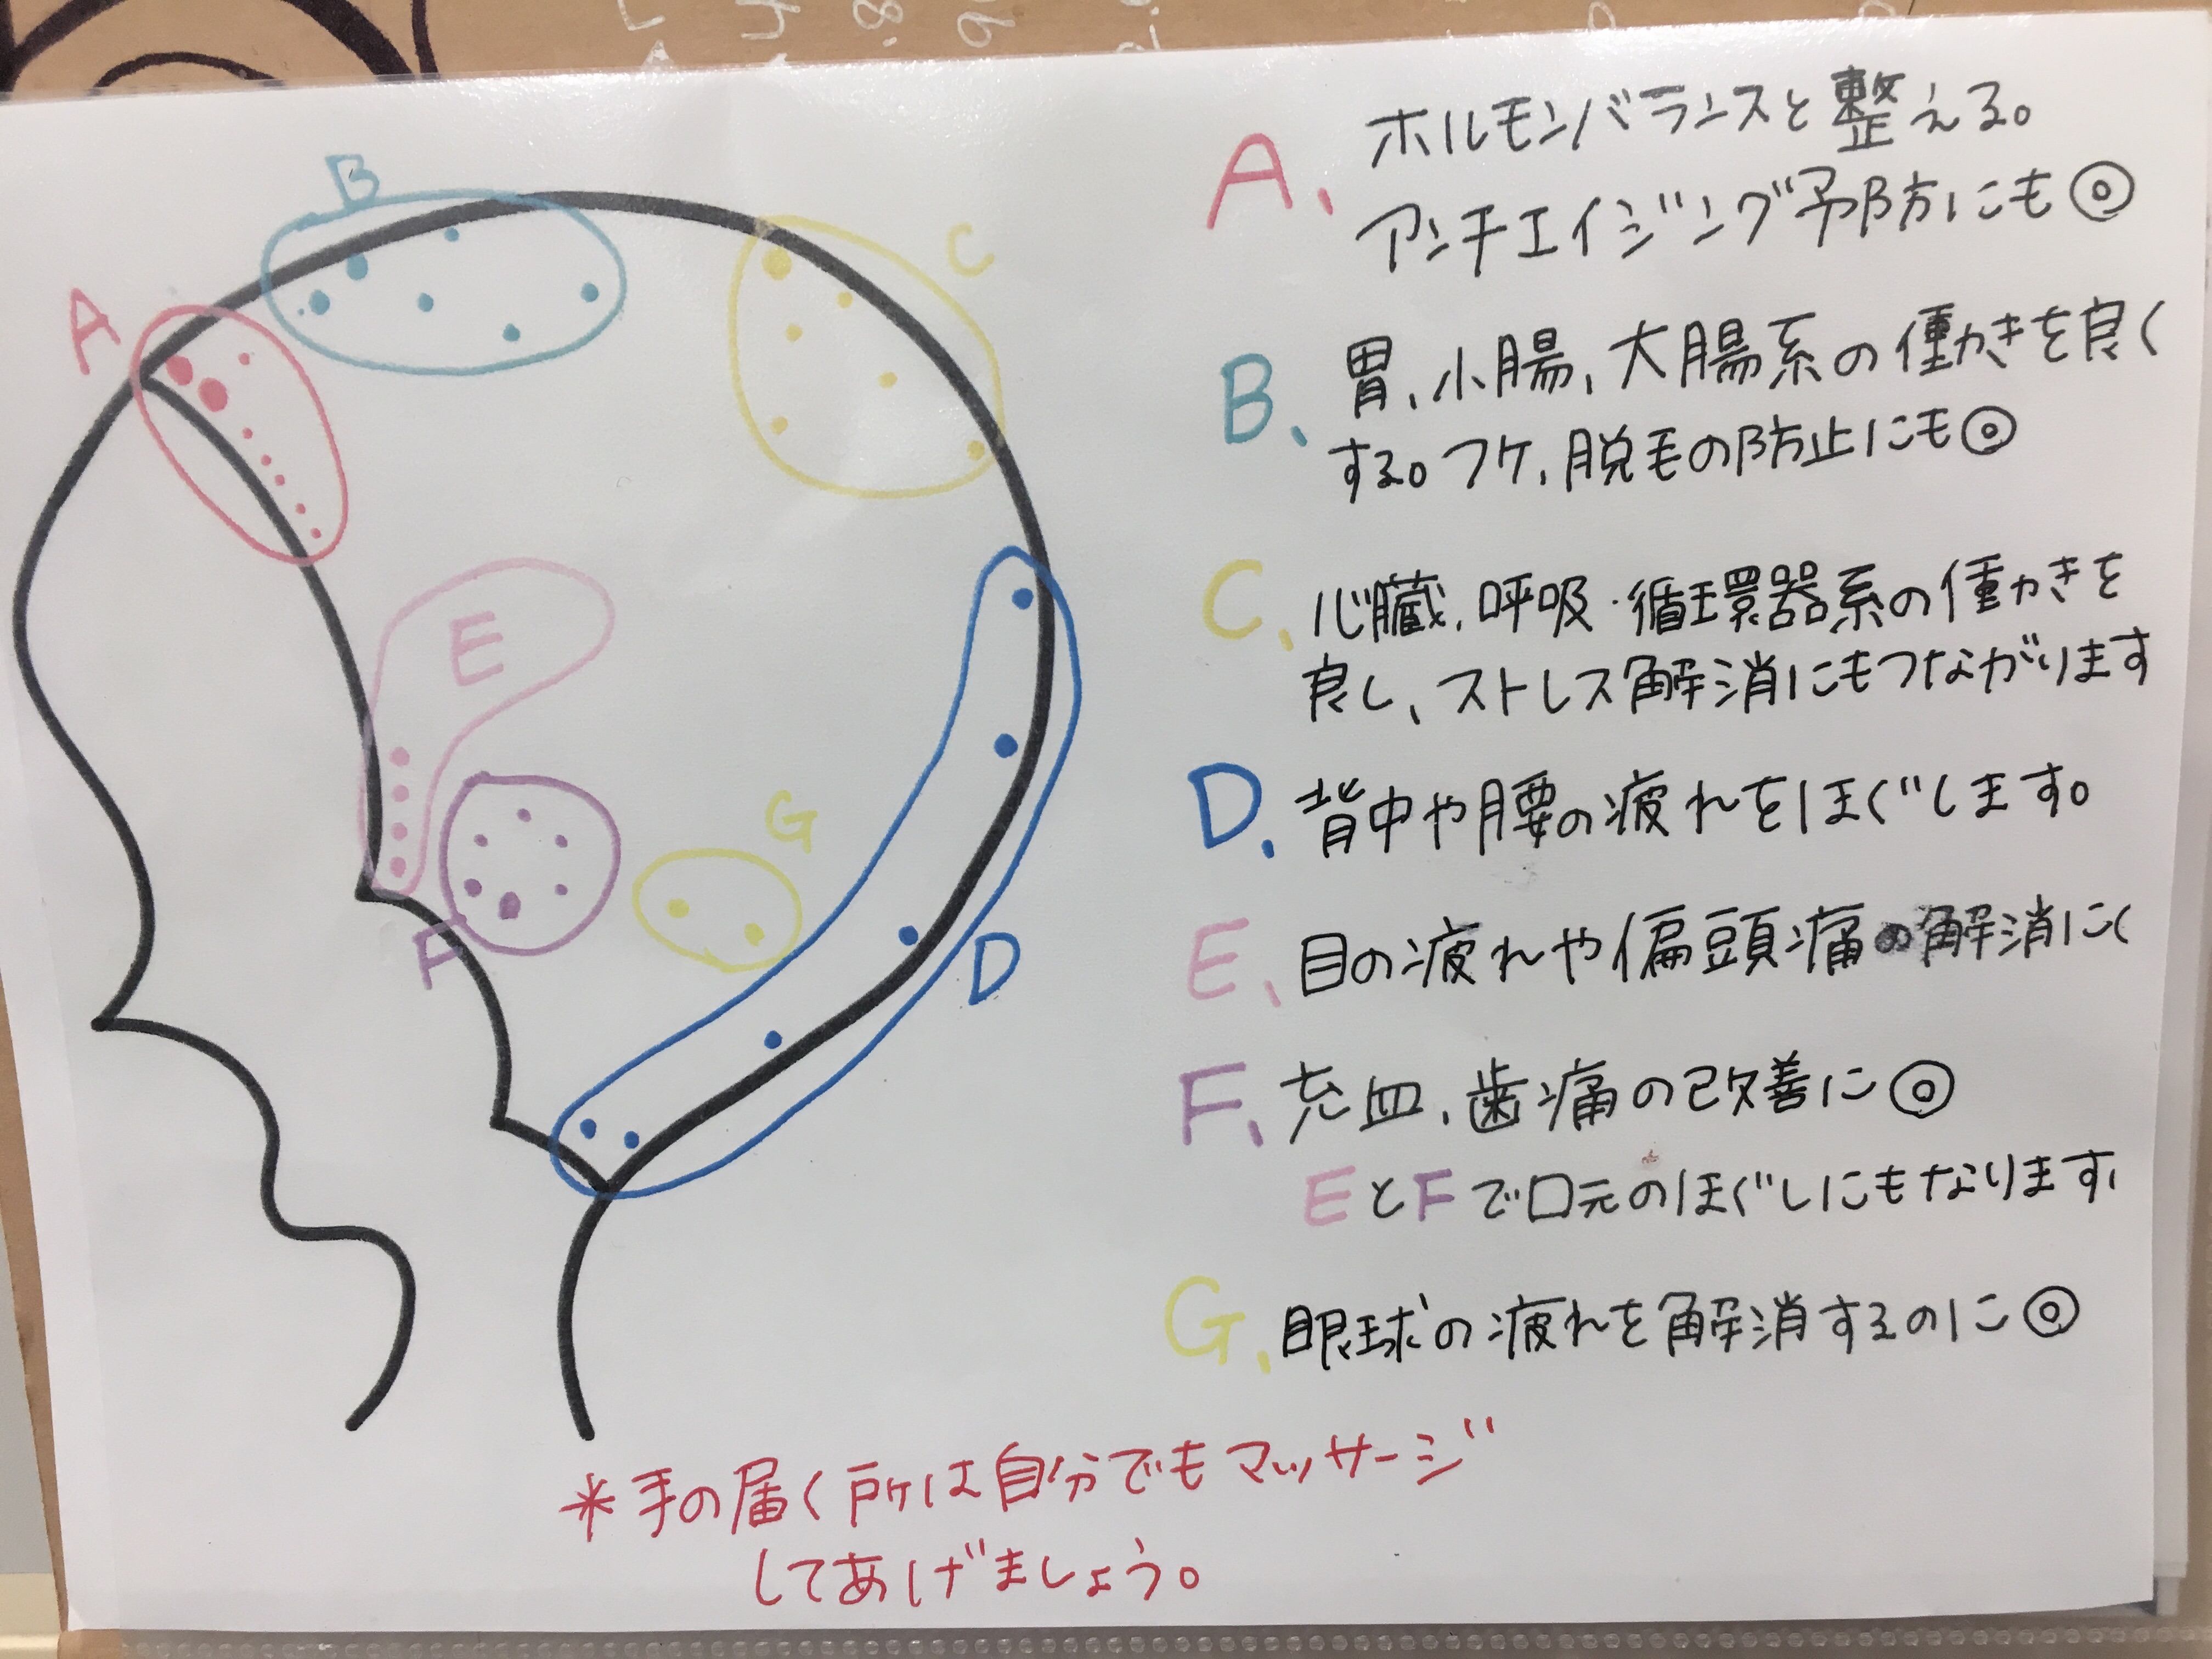 A
B
C
E
F
G
D
A、ホルモンバランスと整える。
アンチエイジング予防にも◎
B、胃、小腸、大腸系の働きを良く
する。フケ、脱毛の防止にも◎
C、心臓、呼吸・循環器系の働きを
良し、ストレス解消にもつながります
D、背中や腰の疲れをほぐします。
E、目の疲れや偏頭痛の解消に
F、充血、歯痛の改善に◎
EとFで口元のほぐしにもなります。
G、眼球の疲れを解消するのに◎
*手の届く所は自分でもマッサージ
してあげましょう。